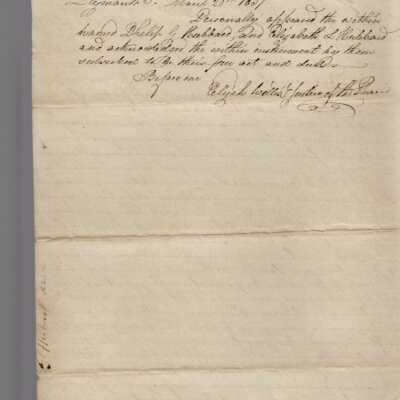 Personally appeared the within
named Philip G Hubbard and Elizabeth L Hubbard
and acknowledged the within instrument by them
subscribed to be their free act and deed
Before me
Elijah Justice of the Peace